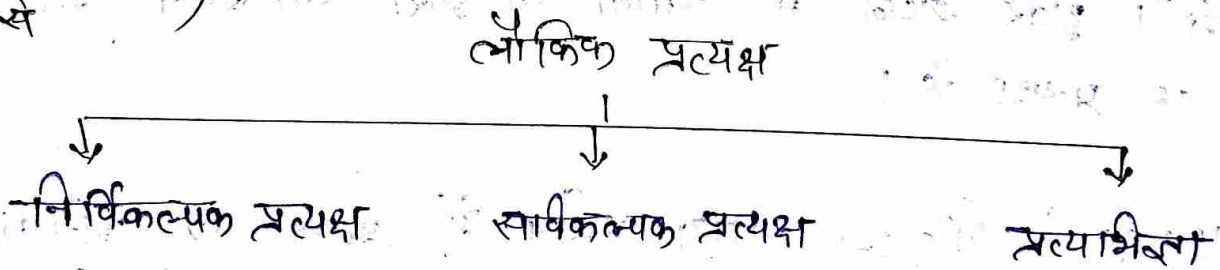 से
लौकिक प्रत्यक्ष
निर्विकल्पक प्रत्यक्ष सविकल्पक प्रत्यक्ष प्रत्यभिज्ञा